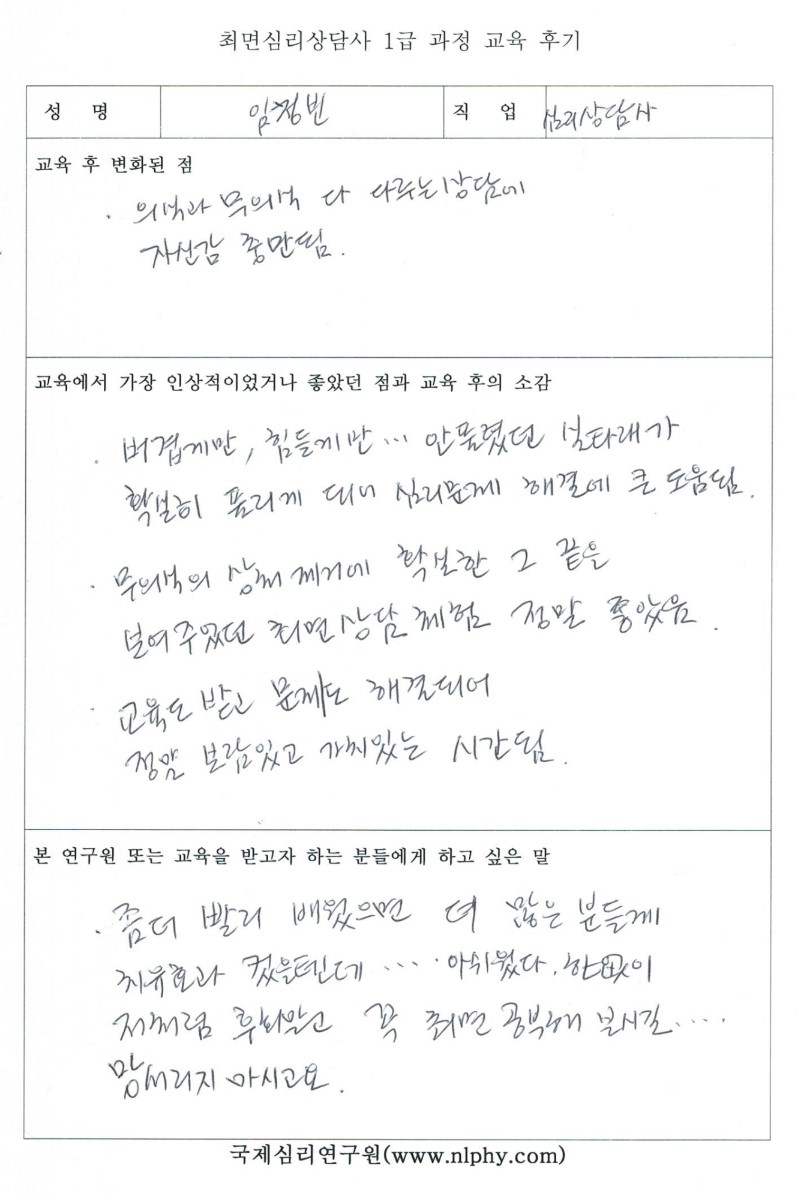 최면심리상담사 1급 과정 교육 후기
성 명 임정빈 직 업 심리상담사
교육 후 변화된 점
. 의식과 무의식 다 다루는 상담에
자신감 충만됨.
교육에서 가장 인상적이었거나 좋았던 점과 교육 후의 소감
. 버겁게만, 힘들게만... 안풀렸던 실타래가
확실히 풀리게 되어 심리문제 해결에 큰 도움됨.
. 무의식의 상처 제거에 확실한 그 끝을
보여주었던 최면상담 체험 정말 좋았음.
. 교육도 받고 문제도 해결되어
정말 보람있고 가치있는 시간됨.
본 연구원 또는 교육을 받고자 하는 분들에게 하고 싶은 말
. 좀더 빨리 배웠으면 더 많은 분들께
치유효과 컸을텐데 .... 아쉬웠다.
저처럼 후회말고 꼭 최면 공부해 보시길....
망서리지 마시고요.
국제심리연구원(www.nlphy.com)